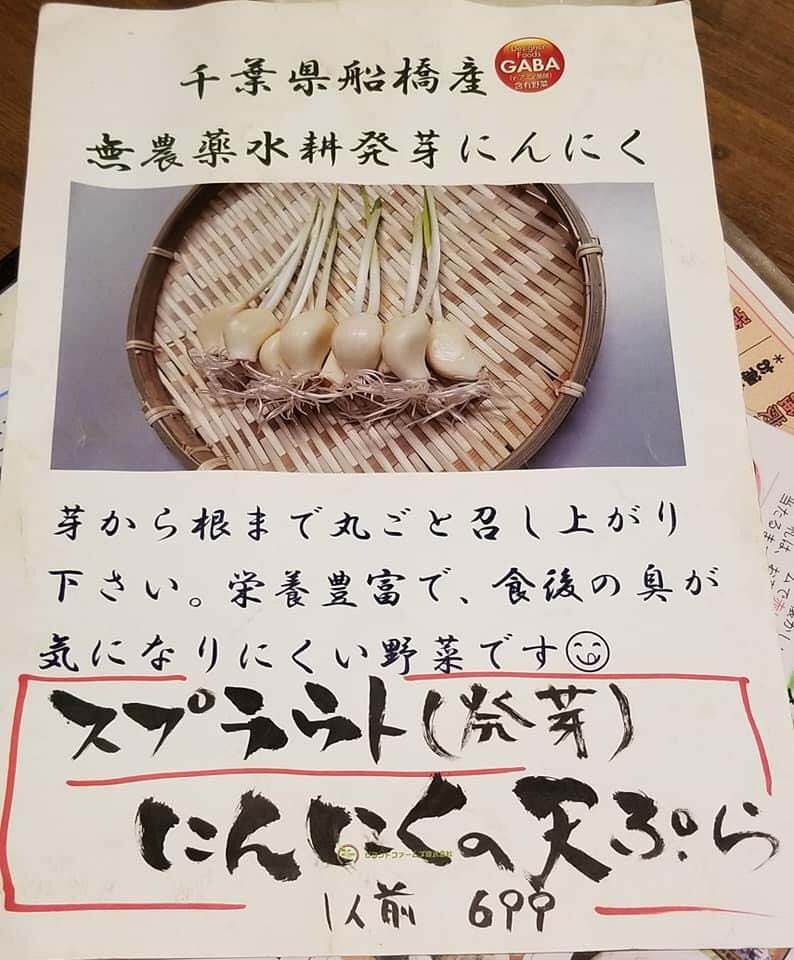 千葉県船橋産
Designer
Foods
GABA
含有野菜
無農薬水耕発芽にんにく
芽から根まで丸ごと召し上がり
下さい。栄養豊富で、食後の臭が
気になりにくい野菜です
スプラウト(発芽)
にんにくの天ぷら
1人前 699